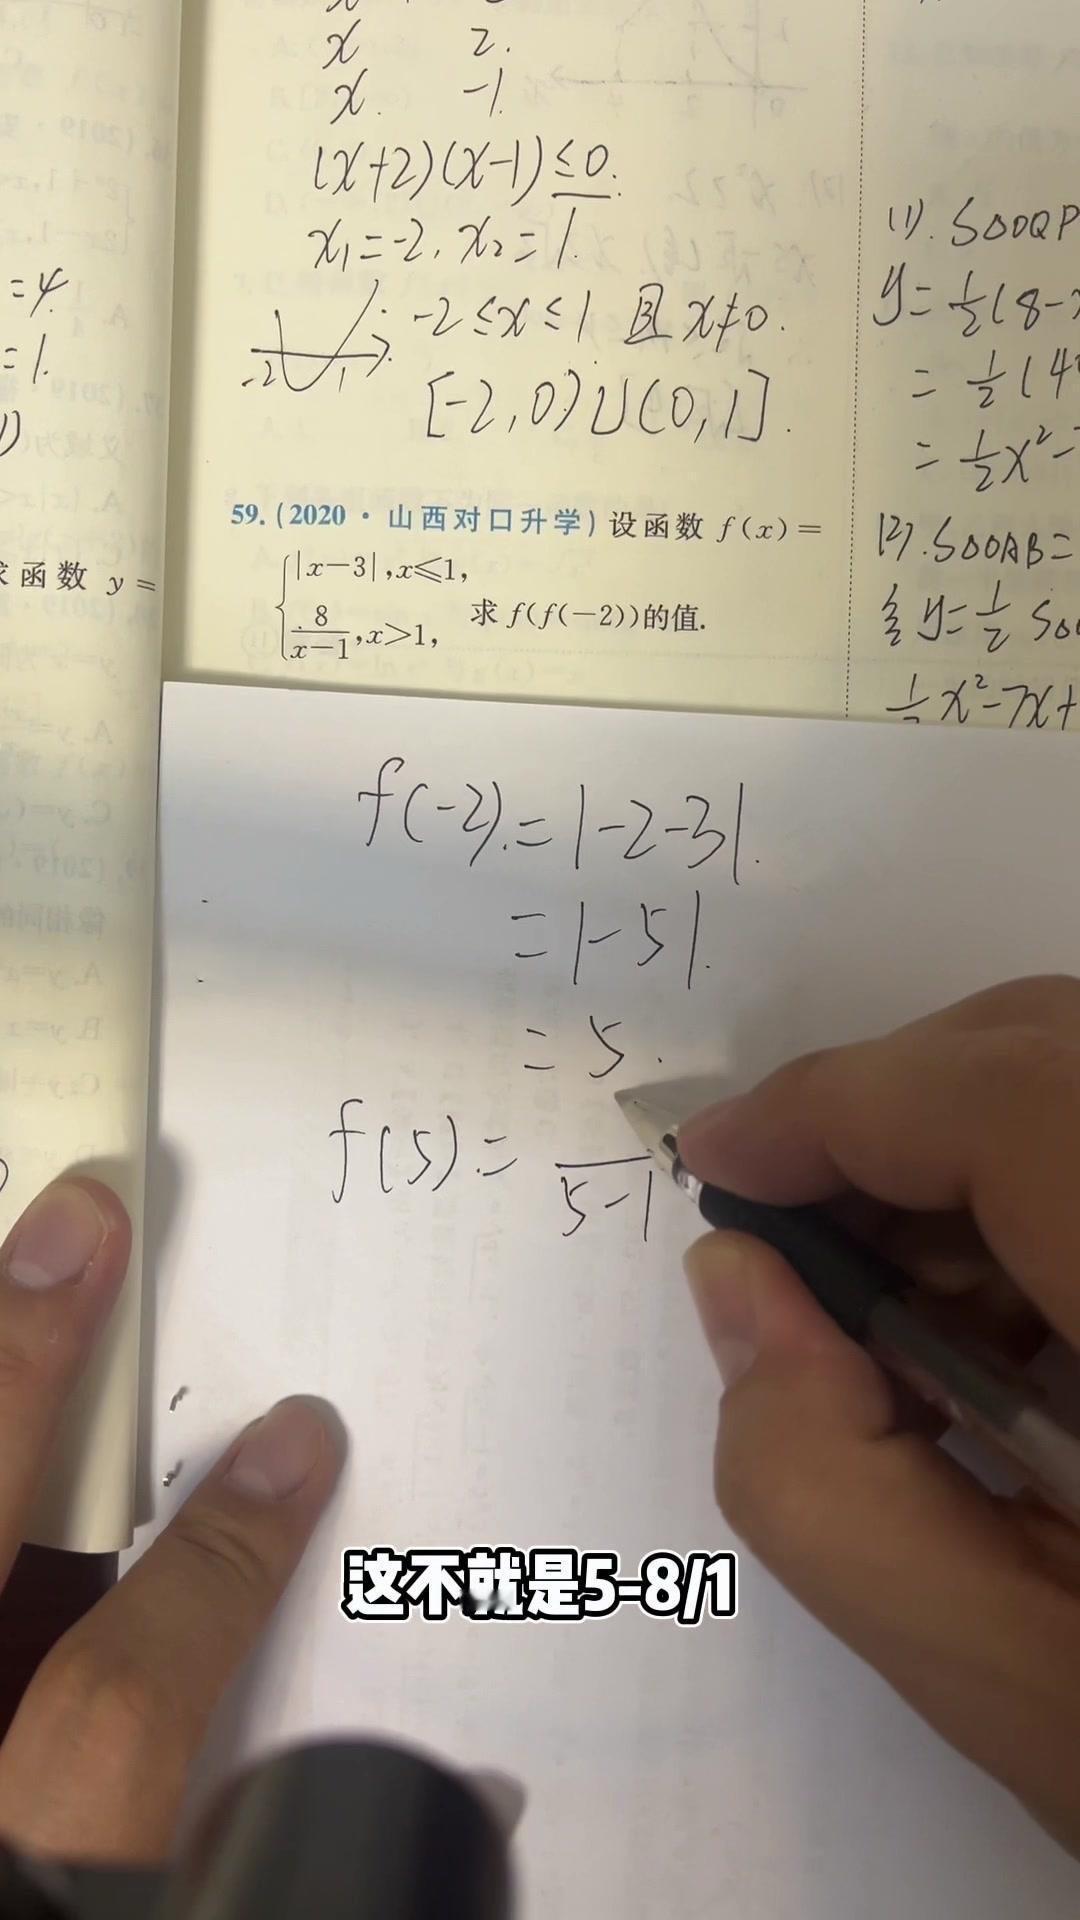 x 2.
x. -1.
(x+2)(x-1)≤0.
x₁=-2, x₂=1.
-2≤x≤1 且 x≠0.
-2 1
[-2,0)∪(0,1].
=4.
=1.
59.(2020·山西对口升学)设函数 f(x)=
|x-3|,x≤1,
8/(x-1),x>1, 求 f(f(-2))的值.
求函数 y=
(1). S△OQP
y=½(8-x
=½(4
=½x²-7
(2). S△OAB=
y=½ S△O
x²-7x+
f(-2).=|-2-3|.
=|-5|.
=5.
f(5)= /(5-1
这不就是5-8/1